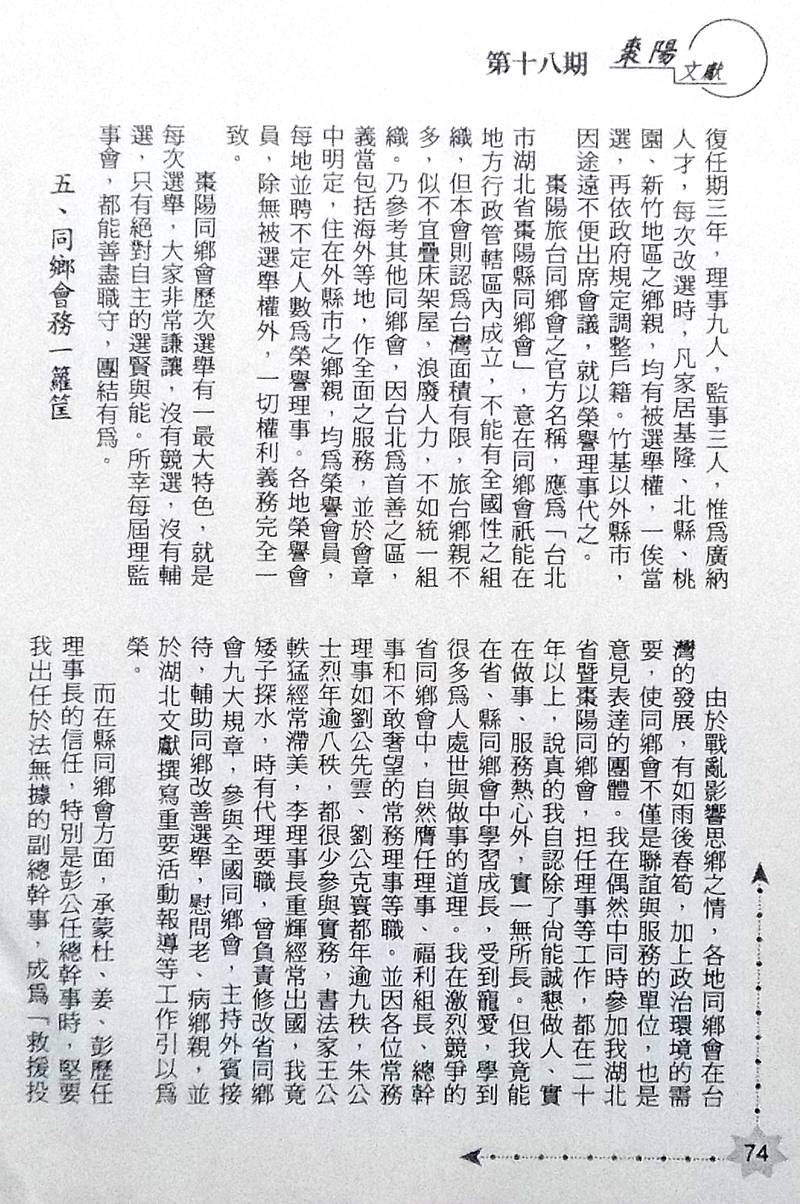 第十八期
棗陽
文獻
復任期三年，理事九人，監事三人，惟為廣納
人才，每次改選時，凡家居基隆、北縣、桃
園、新竹地區之鄉親，均有被選舉權，一俟當
選，再依政府規定調整戶籍。竹基以外縣市，
因途遠不便出席會議，就以榮譽理事代之。
棗陽旅台同鄉會之官方名稱，應為「台北
市湖北省棗陽縣同鄉會」，意在同鄉會祇能在
地方行政管轄區內成立，不能有全國性之組
織，但本會則認為台灣面積有限，旅台鄉親不
多，似不宜疊床架屋，浪廢人力，不如統一組
織。乃參考其他同鄉會，因台北為首善之區，
義當包括海外等地，作全面之服務，並於會章
中明定，住在外縣市之鄉親，均為榮譽會員，
每地並聘不定人數為榮譽理事。各地榮譽會
員，除無被選舉權外，一切權利義務完全一
致。
棗陽同鄉會歷次選舉有一最大特色，就是
每次選舉，大家非常謙讓，沒有競選，沒有輔
選，只有絕對自主的選賢與能。所幸每屆理監
事會，都能善盡職守，團結有為。
五、同鄉會務一籮筐
由於戰亂影響思鄉之情，各地同鄉會在台
灣的發展，有如雨後春筍，加上政治環境的需
要，使同鄉會不僅是聯誼與服務的單位，也是
意見表達的團體。我在偶然中同時參加我湖北
省暨棗陽同鄉會，担任理事等工作，都在二十
年以上，說真的我自認除了尚能誠懇做人、實
在做事、服務熱心外，實一無所長。但我竟能
在省、縣同鄉會中學習成長，受到寵愛，學到
很多為人處世與做事的道理。我在激烈競爭的
省同鄉會中，自然膺任理事、福利組長、總幹
事和不敢奢望的常務理事等職。並因各位常務
理事如劉公先雲、劉公克寰都年逾九秩，朱公
士烈年逾八秩，都很少參與實務，書法家王公
軼猛經常滯美，李理事長重輝經常出國，我竟
矮子探水，時有代理要職，曾負責修改省同鄉
會九大規章，參與全國同鄉會，主持外賓接
待，輔助同鄉改善選舉，慰問老、病鄉親，並
於湖北文獻撰寫重要活動報導等工作引以為
榮。
而在縣同鄉會方面，承蒙杜、姜、彭歷任
理事長的信任，特別是彭公任總幹事時，堅要
我出任於法無據的副總幹事，成為「救援投
74